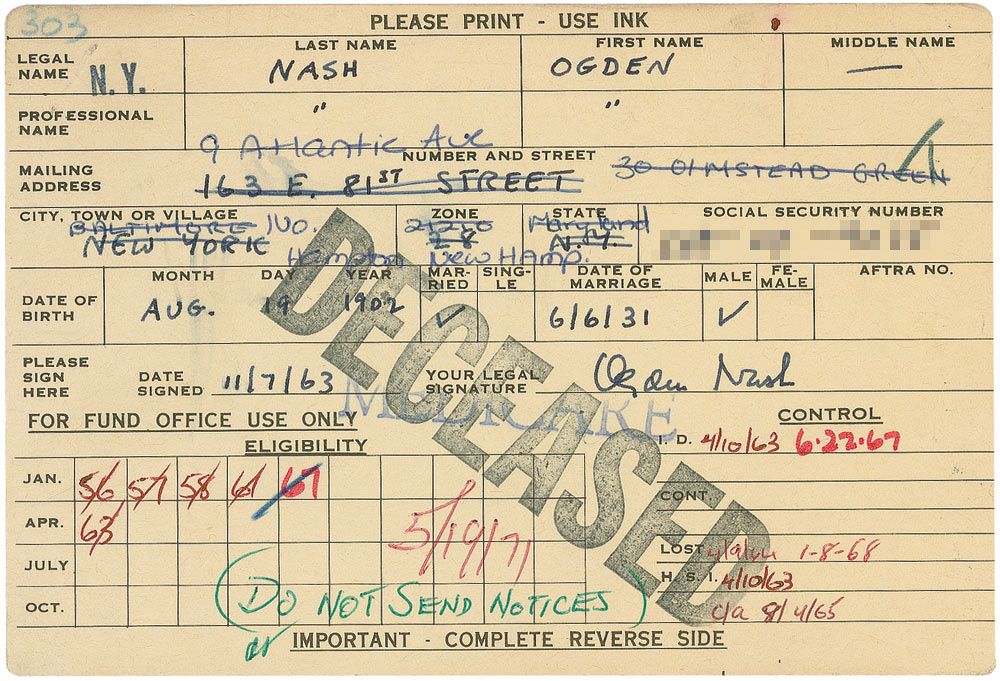 303
PLEASE PRINT - USE INK
LEGAL NAME N.Y.
LAST NAME FIRST NAME MIDDLE NAME
NASH OGDEN —
PROFESSIONAL NAME " "
9 Atlantic Ave
NUMBER AND STREET
MAILING ADDRESS 163 E. 81ST STREET 30 OLMSTEAD GREEN
CITY, TOWN OR VILLAGE ZONE STATE SOCIAL SECURITY NUMBER
BALTIMORE No. Maryland
NEW YORK 28 N.Y.
Hampton New Hamp.
MONTH DAY YEAR MARRIED SINGLE DATE OF MARRIAGE MALE FEMALE AFTRA NO.
DATE OF BIRTH AUG. 19 1902 ✓ 6/6/31 ✓
PLEASE SIGN HERE DATE SIGNED 11/7/63 YOUR LEGAL SIGNATURE Ogden Nash
DECEASED
MEDICARE
FOR FUND OFFICE USE ONLY CONTROL
ELIGIBILITY I. D. 4/10/63 6-22-67
JAN. 56 57 58 61 67
CONT.
APR. 63 5/19/71
LOST 1-8-68
JULY
H. S. I. 4/10/63
OCT. DO NOT SEND NOTICES c/a 8/4/65
IMPORTANT - COMPLETE REVERSE SIDE